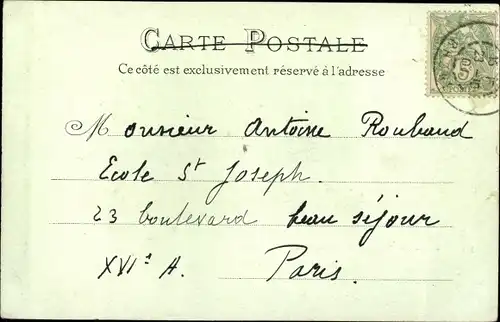 CARTE POSTALE
Ce côté est exclusivement réservé à l'adresse
Monsieur Antoine Roubaud
Ecole St Joseph.
23 boulevard beau séjour
XVIe A. Paris.
5